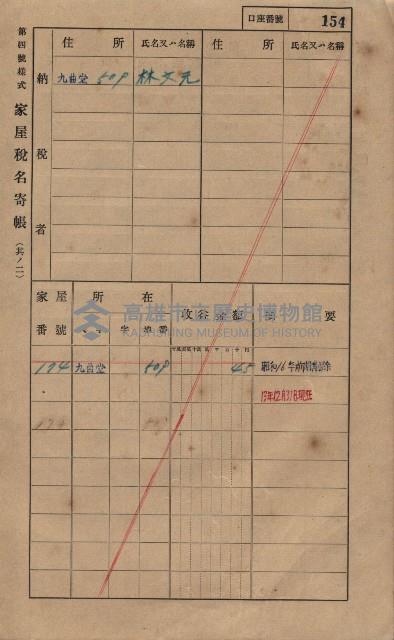 口座番號 154
第四號樣式 家屋稅名寄帳 (其ノ二)
住所 氏名又ハ名稱 住所 氏名又ハ名稱
納稅者
九曲堂 509 林文元
家屋番號 所在 摘要
字 地番
174 九曲堂 509 45 昭和16年前期削除
13年12月31日現在
174
高雄市立歷史博物館
KAOHSIUNG MUSEUM OF HISTORY